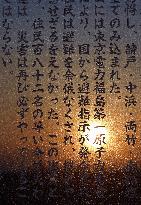 し、請戸・中浜・両竹
てのみ込まれた。
は東京電力福島第一原子
より、国から避難指示が発
に避難を余儀なくされ
せざるをえなかった。この
住民百八十二名の尊い
災害は再び必ずや
はならない。